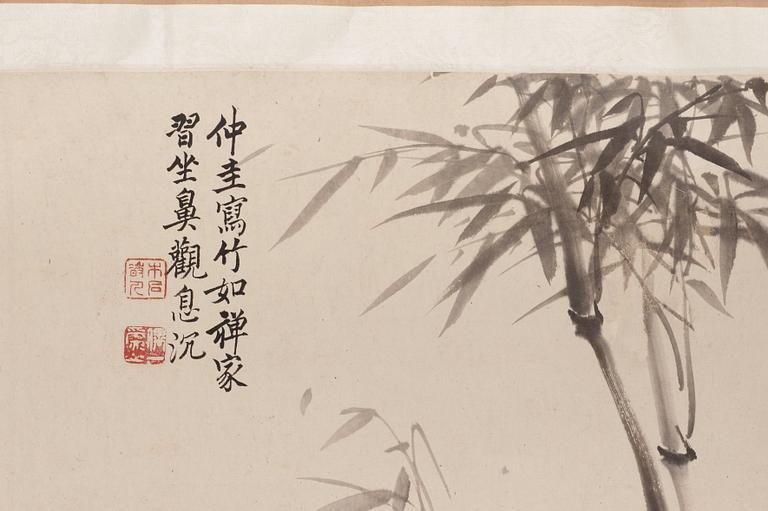 仲圭寫竹如禅家
習坐鼻觀息沉